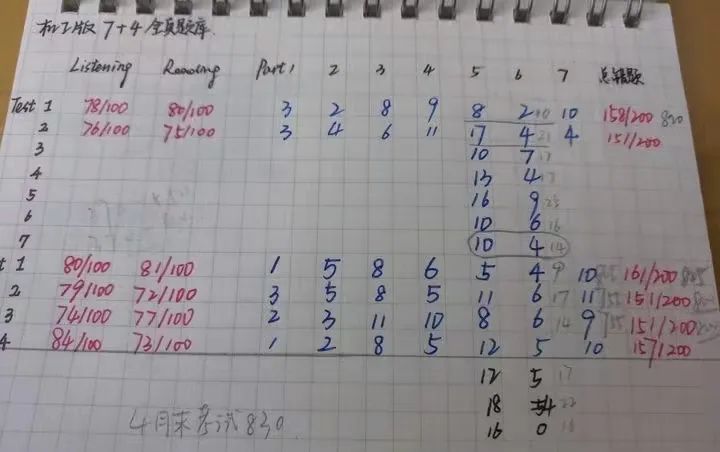 新版 7+4 全真题库
Listening Reading Part 1 2 3 4 5 6 7 总错题
Test 1 78/100 80/100 3 2 8 9 8 2 10 10 158/200 820
2 76/100 75/100 3 4 6 11 17 4 21 4 151/200
3 10 7 17
4 13 4 17
5 16 9 25
6 10 6 16
7 10 4 14
t 1 80/100 81/100 1 5 8 6 5 4 9 10 161/200
2 79/100 72/100 3 5 8 5 11 6 17 11 151/200
3 74/100 77/100 2 3 11 10 8 6 14 9 151/200
4 84/100 73/100 1 2 8 5 12 5 10 157/200
12 5 17
18 4 22
16 0 16
4月末考试830